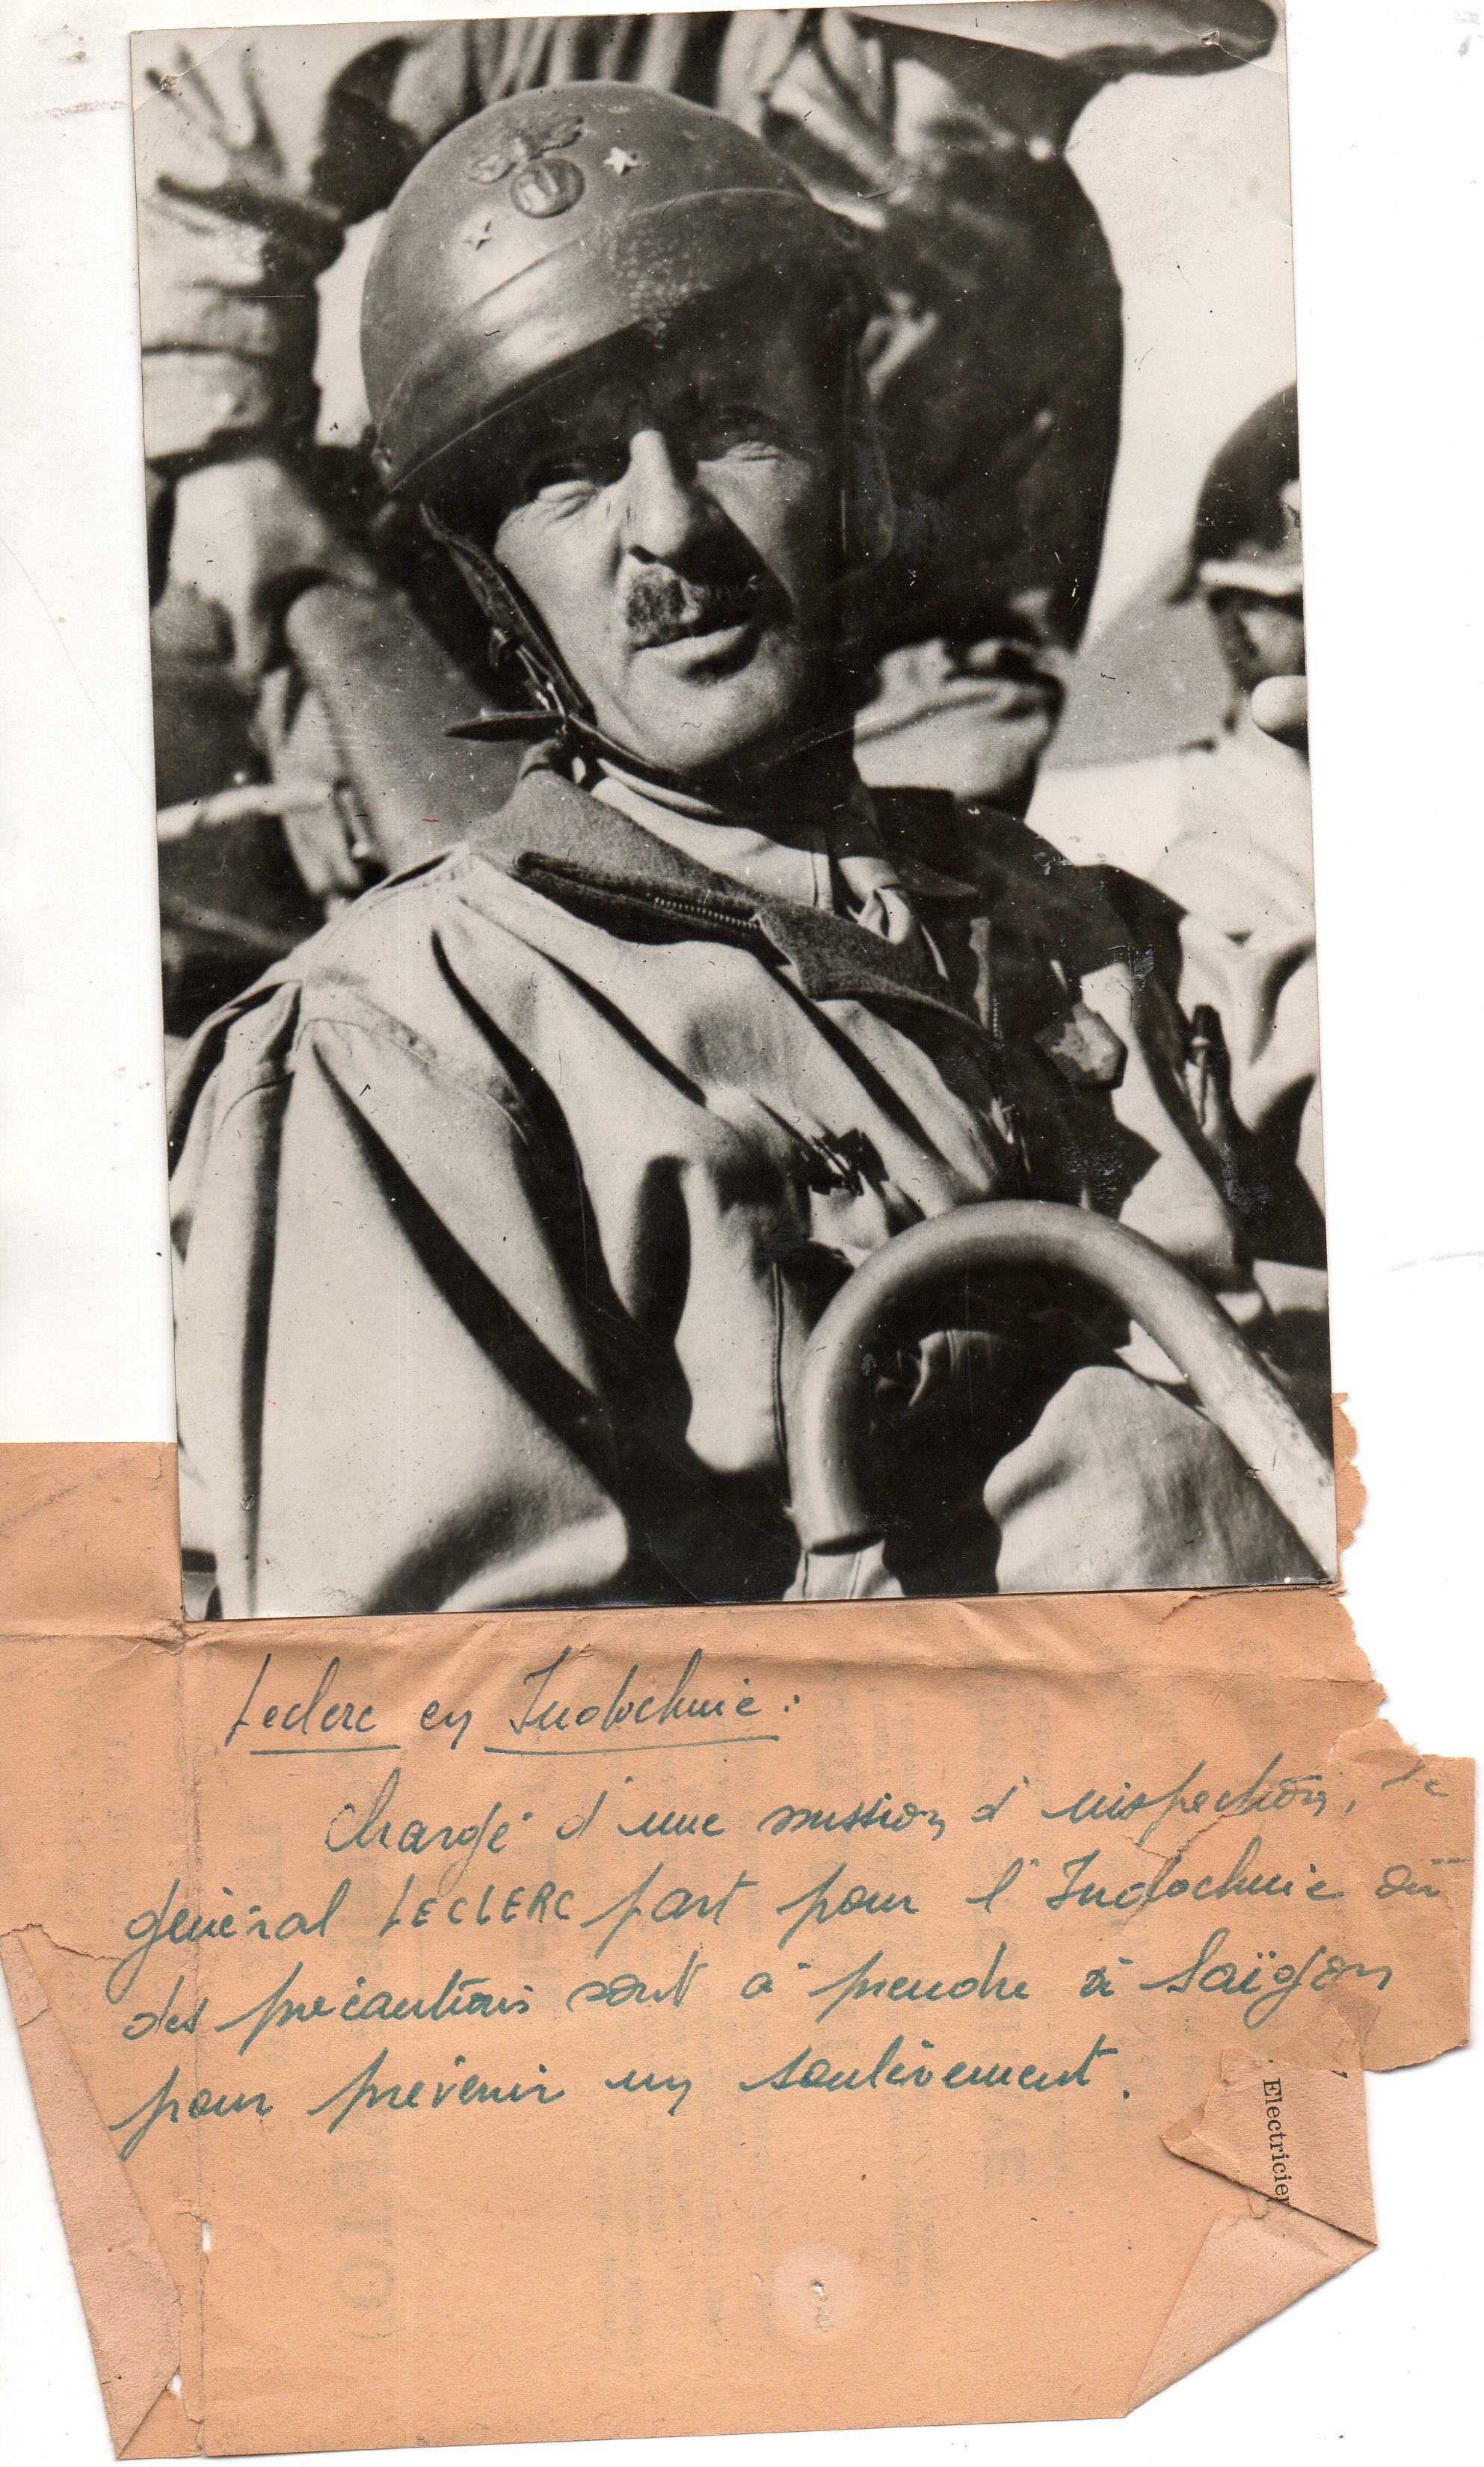 Leclerc en Indochine :
Chargé d'une mission d'inspection, le
général LECLERC part pour l'Indochine où
des précautions sont à prendre à Saïgon
pour prévenir un soulèvement.
Electricien